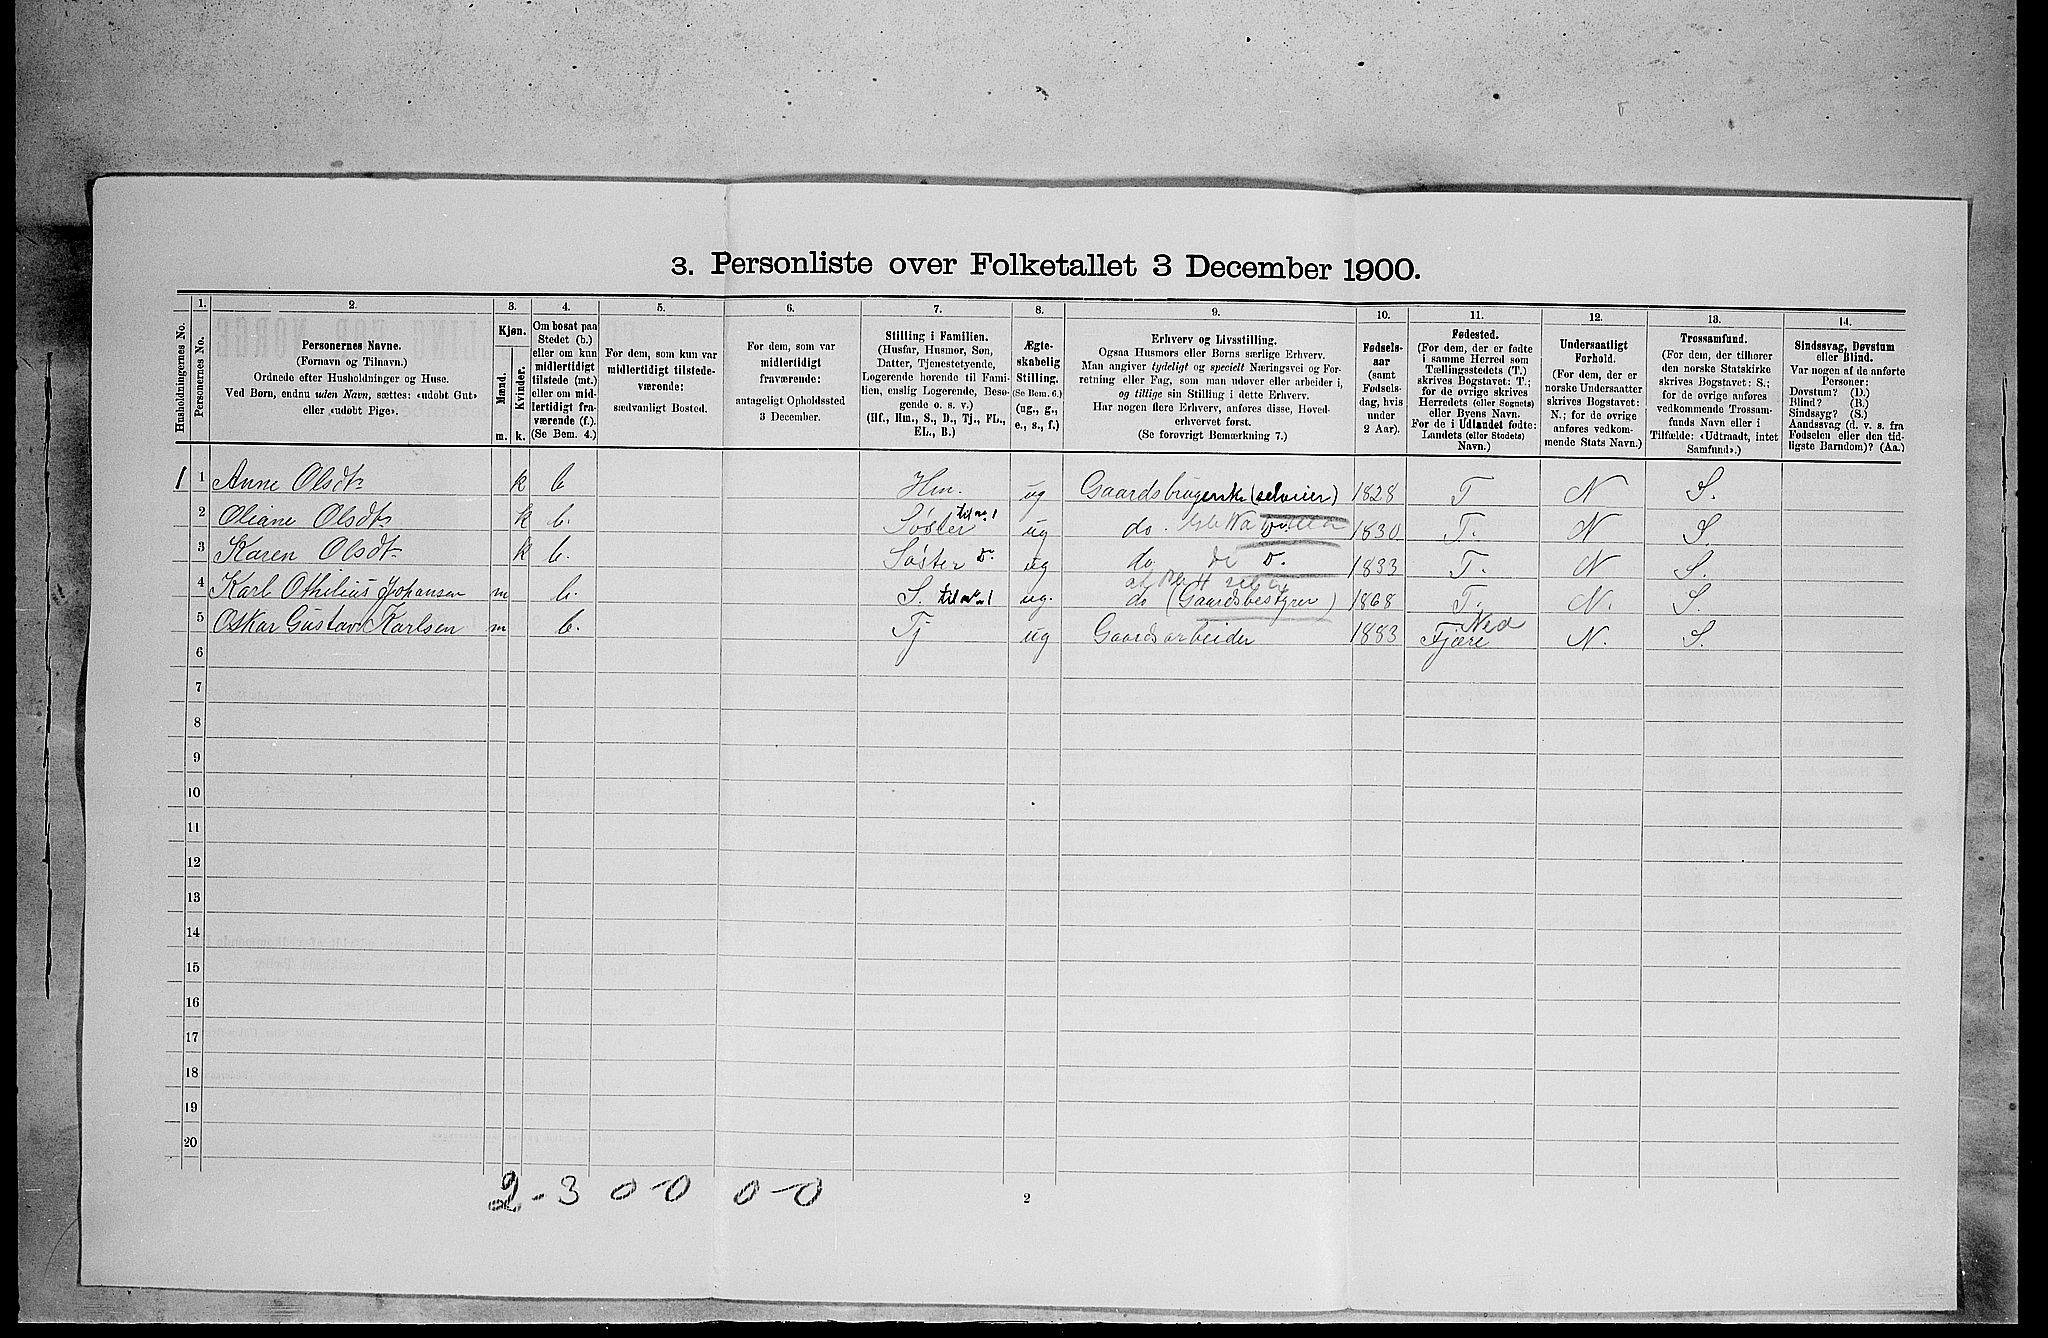 3. Personliste over Folketallet 3 December 1900.
Husholdningernes No.
1. Personernes No.
2. Personernes Navne.
(Fornavn og Tilnavn.)
Ordnede efter Husholdninger og Huse.
Ved Børn, endnu uden Navn, sættes: «udøbt Gut»
eller «udøbt Pige».
3. Kjøn.
Mænd. m.
Kvinder. k.
4. Om bosat paa
Stedet (b.)
eller om kun
midlertidigt
tilstede (mt.)
eller om mid-
lertidigt fra-
værende (f.).
(Se Bem. 4.)
5. For dem, som kun var
midlertidigt tilstede-
værende:
sædvanligt Bosted.
6. For dem, som var
midlertidigt
fraværende:
antageligt Opholdssted
3 December.
7. Stilling i Familien.
(Husfar, Husmor, Søn,
Datter, Tjenestetyende,
Logerende hørende til Fami-
lien, enslig Logerende, Besø-
gende o. s. v.)
(Hf., Hm., S., D., Tj., FL.,
EL., B.)
8. Ægte-
skabelig
Stilling.
(Se Bem. 6.)
(ug., g.,
e., s., f.)
9. Erhverv og Livsstilling.
Ogsaa Husmors eller Børns særlige Erhverv.
Man angiver tydeligt og specielt Næringsvei og For-
retning eller Fag, som man udøver eller arbeider i,
og tillige sin Stilling i dette Erhverv.
Har nogen flere Erhverv, anføres disse, Hoved-
erhvervet først.
(Se forøvrigt Bemærkning 7.)
10. Fødsels-
aar
(samt
Fødsels-
dag, hvis
under
2 Aar).
11. Fødested.
(For dem, der er fødte
i samme Herred som
Tællingsstedets (T.)
skrives Bogstavet: T.;
for de øvrige skrives
Herredets (eller Sognets)
eller Byens Navn.
For de i Udlandet fødte:
Landets (eller Stedets)
Navn.)
12. Undersaatligt
Forhold.
(For dem, der er
norske Undersaatter
skrives Bogstavet:
N.; for de øvrige
anføres vedkom-
mende Stats Navn.)
13. Trossamfund.
(For dem, der tilhører
den norske Statskirke
skrives Bogstavet: S.;
for de øvrige anføres
vedkommende Trossam-
funds Navn eller i
Tilfælde: «Udtraadt, intet
Samfund».)
14. Sindssvag, Døvstum
eller Blind.
Var nogen af de anførte
Personer:
Døvstum? (D.)
Blind? (B.)
Sindssyg? (S.)
Aandssvag (d. v. s. fra
Fødselen eller den tid-
ligste Barndom)? (Aa.)
1 1 Anne Olsdtr k b Hm. ug Gaardsbrugerske (selveier) 1828 T N S.
2 Oliane Olsdtr k b. Søster til no. 1 ug do. 1830 T. N S.
3 Karen Olsdtr k b. Søster do. ug do do 1833 T. N S.
4 Karl Othilius Johansen m b. S. til no. 1 ug. do (Gaardsbestyrer) 1868 T. N. S.
5 Oskar Gustav Karlsen m b. Tj ug Gaardsarbeider 1883 Fjære Ned N. S.
6
7
8
9
10
11
12
13
14
15
16
17
18
19
20
2-3 0-0 0-0
2